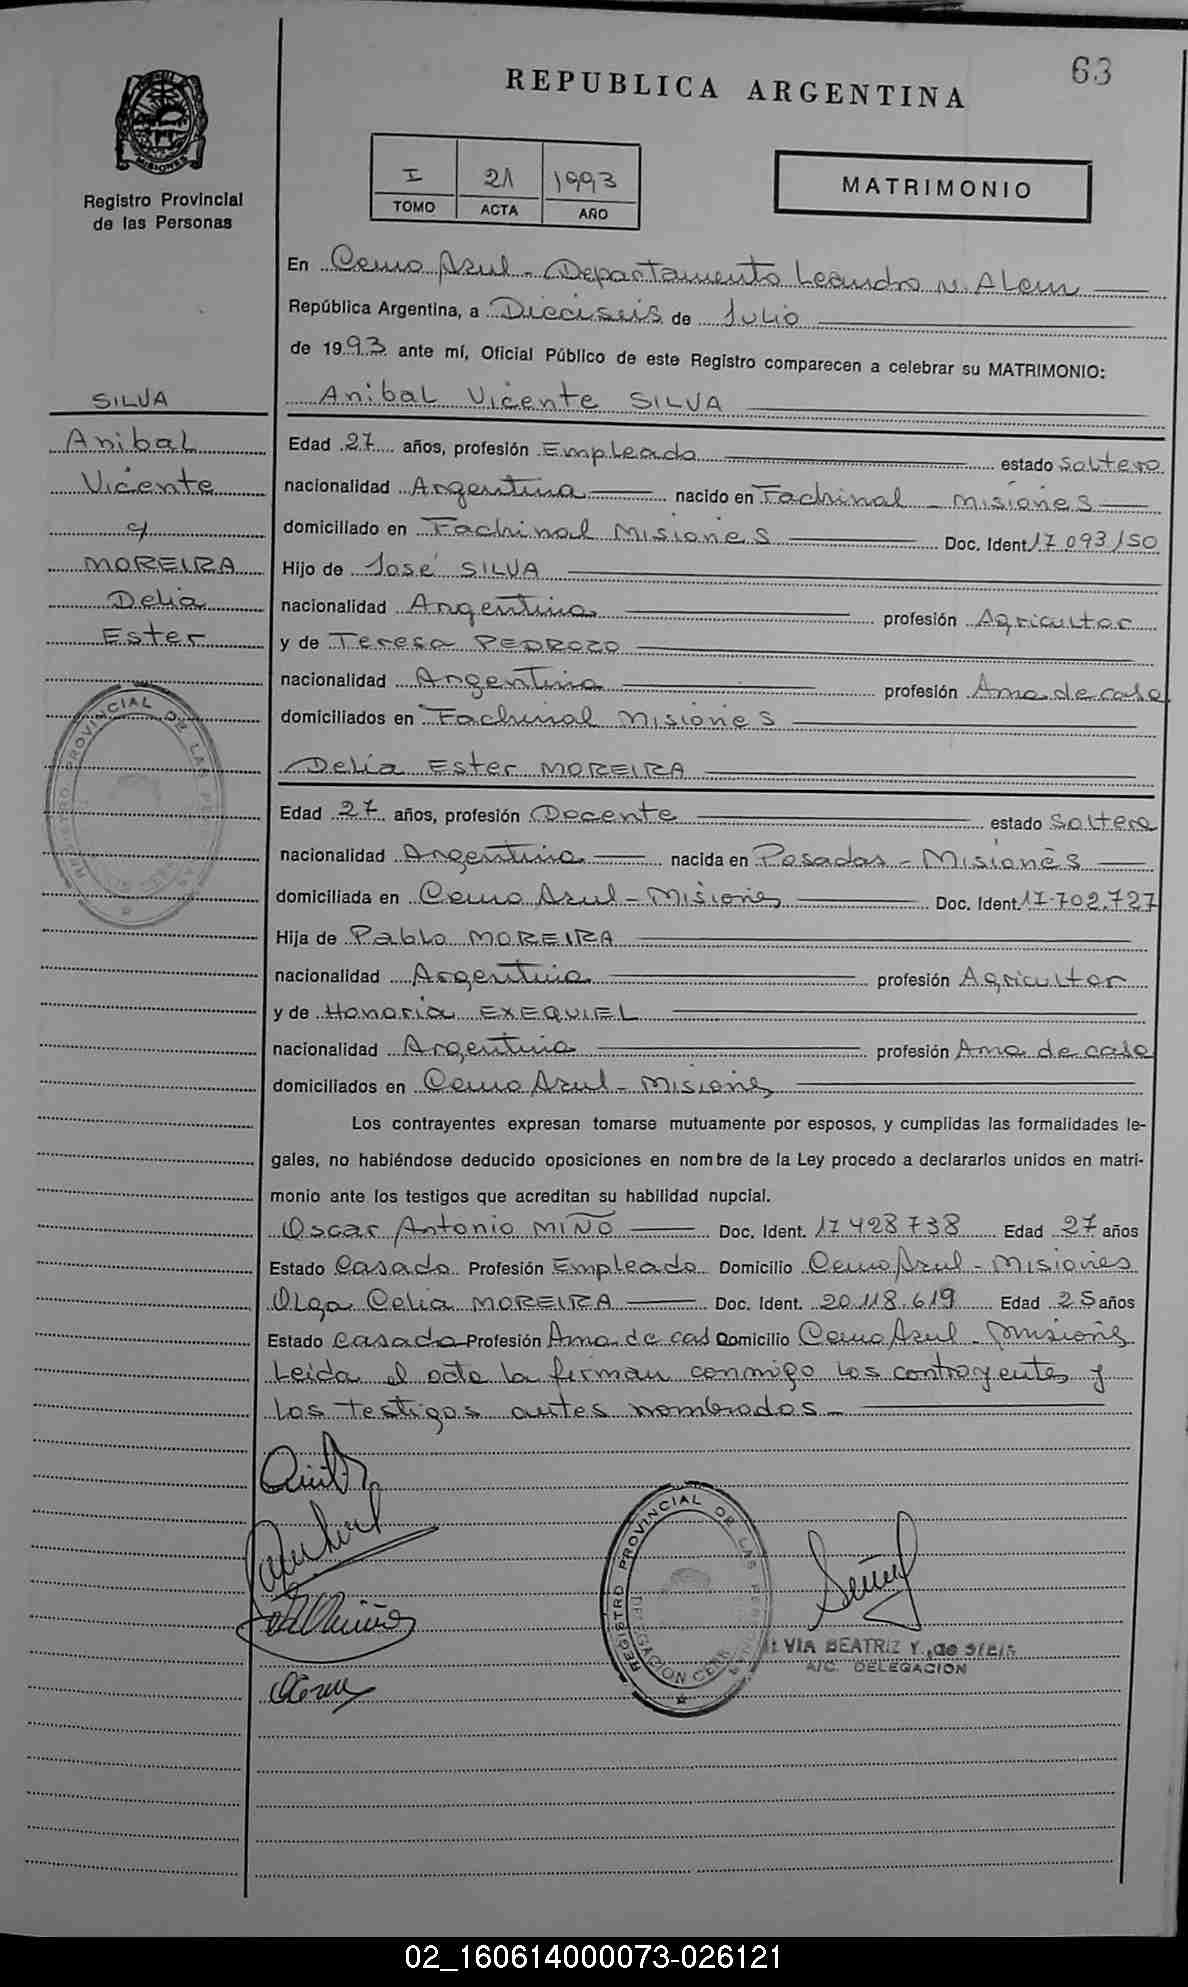 63
REPUBLICA ARGENTINA
MISIONES
Registro Provincial
de las Personas
I 21 1993
TOMO ACTA AÑO
MATRIMONIO
En Cerro Azul - Departamento Leandro N. Alem
República Argentina, a Dieciseis de Julio
de 1993 ante mí, Oficial Público de este Registro comparecen a celebrar su MATRIMONIO:
SILVA
Anibal
Vicente
c/
MOREIRA
Delia
Ester
Anibal Vicente SILVA
Edad 27 años, profesión Empleado estado Soltero
nacionalidad Argentina nacido en Fachinal - Misiones
domiciliado en Fachinal Misiones Doc. Ident. 17.093.150
Hijo de José SILVA
nacionalidad Argentina profesión Agricultor
y de Teresa PEDROZO
nacionalidad Argentina profesión Ama de casa
domiciliados en Fachinal Misiones
Delia Ester MOREIRA
Edad 27 años, profesión Docente estado Soltera
nacionalidad Argentina nacida en Posadas - Misiones
domiciliada en Cerro Azul - Misiones Doc. Ident. 17.702.727
Hija de Pablo MOREIRA
nacionalidad Argentina profesión Agricultor
y de Honoria EXEQUIEL
nacionalidad Argentina profesión Ama de casa
domiciliados en Cerro Azul - Misiones
Los contrayentes expresan tomarse mutuamente por esposos, y cumplidas las formalidades le-
gales, no habiéndose deducido oposiciones en nombre de la Ley procedo a declararlos unidos en matri-
monio ante los testigos que acreditan su habilidad nupcial.
Oscar Antonio MIÑO Doc. Ident. 17428738 Edad 27 años
Estado Casado Profesión Empleado Domicilio Cerro Azul - Misiones
Olga Celia MOREIRA Doc. Ident. 20.118.619 Edad 25 años
Estado Casada Profesión Ama de cas Domicilio Cerro Azul - Misiones
Leída el acta la firman conmigo los contrayentes y
los testigos antes nombrados -
REGISTRO PROVINCIAL DE LAS PE
REGISTRO PROVINCIAL DE LAS PE
DELEGACION CERR
VIA BEATRIZ Y. de
A/C. DELEGACION
02_160614000073-026121